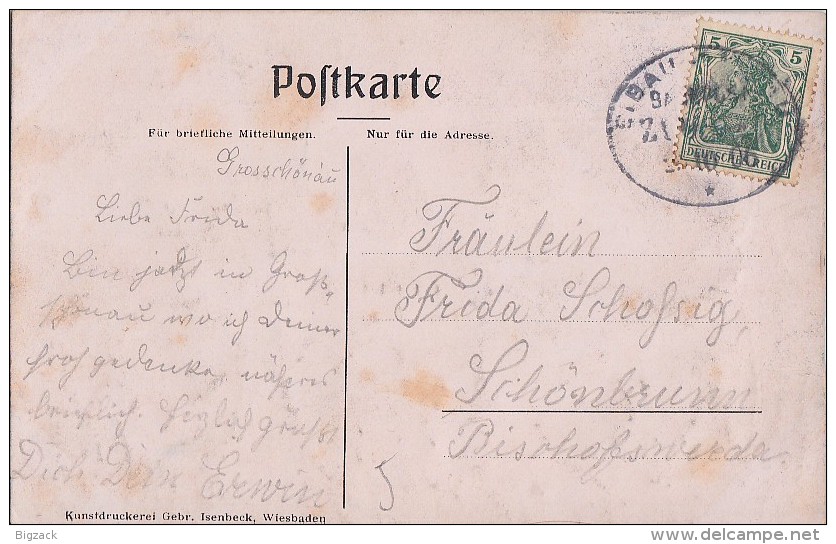 Postkarte
Für briefliche Mitteilungen. Nur für die Adresse.
5 5
DEUTSCHES REICH
EIBAU
BAHNPOST
ZUG
Grosschönau
Liebe Frida
Bin jetzt in Groß-
schönau wo ich Deiner
froh gedenke, näheres
brieflich. Herzlich grüßt
Dich Dein Erwin
Fräulein
Frida Schoßsig,
Schönbrunn
Bischofswerda
5
Kunstdruckerei Gebr. Isenbeck, Wiesbaden
Bigzack
www.delcampe.net